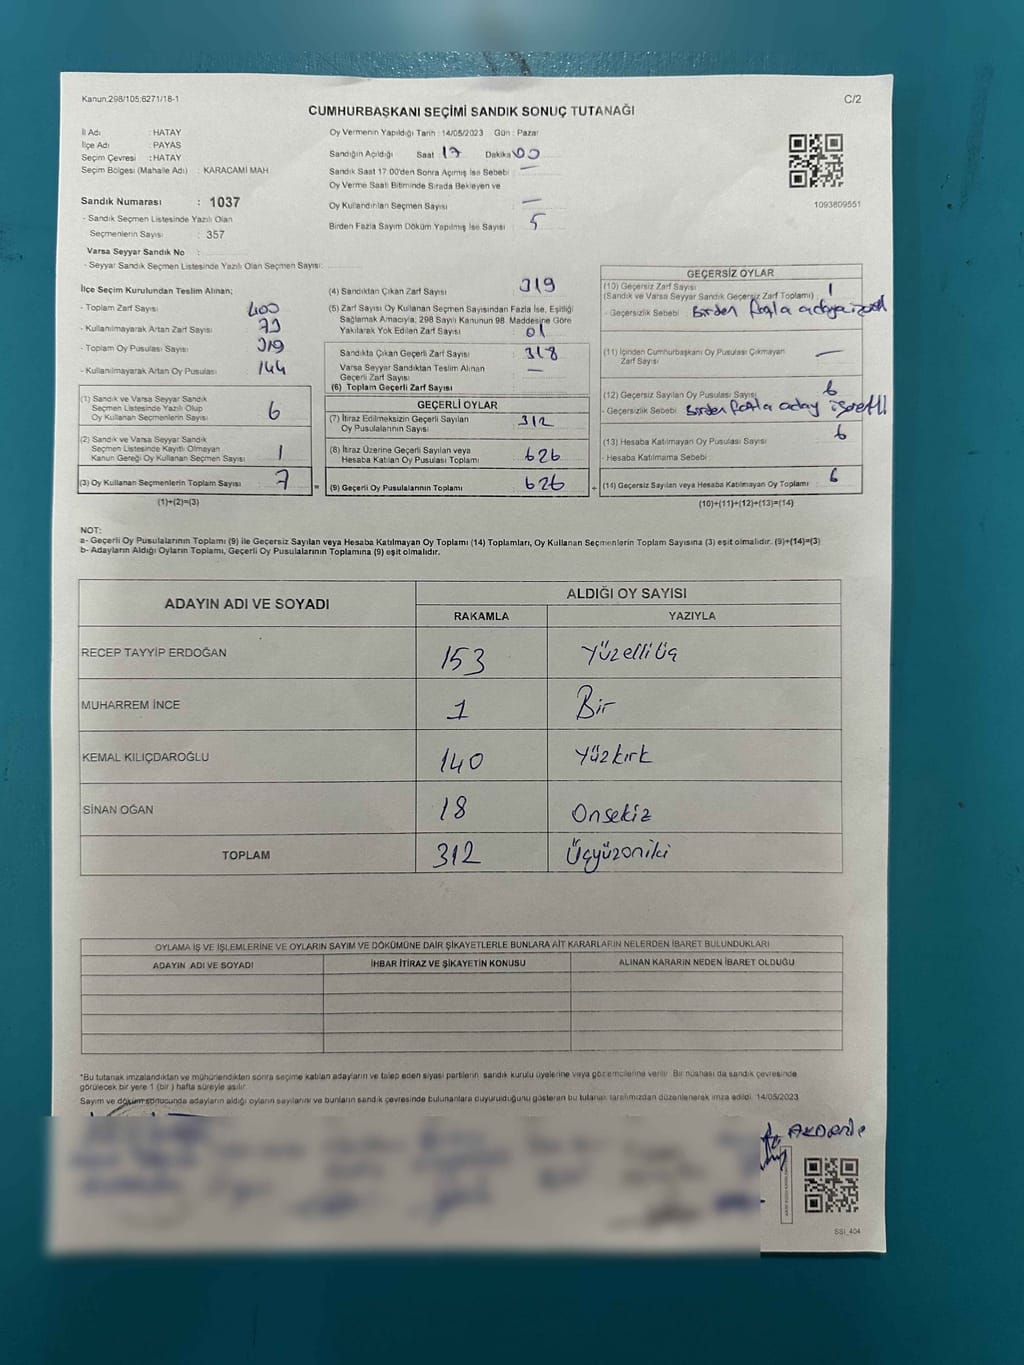 Kanun:298/105;6271/18-1
C/2
CUMHURBAŞKANI SEÇİMİ SANDIK SONUÇ TUTANAĞI
İl Adı : HATAY
İlçe Adı : PAYAS
Seçim Çevresi : HATAY
Seçim Bölgesi (Mahalle Adı) : KARACAMİ MAH
Sandık Numarası : 1037
- Sandık Seçmen Listesinde Yazılı Olan
Seçmenlerin Sayısı : 357
Varsa Seyyar Sandık No :
- Seyyar Sandık Seçmen Listesinde Yazılı Olan Seçmen Sayısı:
Oy Vermenin Yapıldığı Tarih : 14/05/2023 Gün : Pazar
Sandığın Açıldığı Saat 17 Dakika 00
Sandık Saat 17:00'den Sonra Açmış İse Sebebi : —
Oy Verme Saati Bitiminde Sırada Bekleyen ve
Oy Kullandırılan Seçmen Sayısı : —
Birden Fazla Sayım Döküm Yapılmış İse Sayısı : 5
1093809551
İlçe Seçim Kurulundan Teslim Alınan;
- Toplam Zarf Sayısı : 400
- Kullanılmayarak Artan Zarf Sayısı : 79
- Toplam Oy Pusulası Sayısı : 319
- Kullanılmayarak Artan Oy Pusulası : 144
(1) Sandık ve Varsa Seyyar Sandık
Seçmen Listesinde Yazılı Olup
Oy Kullanan Seçmenlerin Sayısı : 6
(2) Sandık ve Varsa Seyyar Sandık
Seçmen Listesinde Kayıtlı Olmayan
Kanun Gereği Oy Kullanan Seçmen Sayısı : 1
(3) Oy Kullanan Seçmenlerin Toplam Sayısı : 7
(1)+(2)=(3)
(4) Sandıktan Çıkan Zarf Sayısı : 319
(5) Zarf Sayısı Oy Kullanan Seçmen Sayısından Fazla İse, Eşitliği
Sağlamak Amacıyla; 298 Sayılı Kanunun 98. Maddesine Göre
Yakılarak Yok Edilen Zarf Sayısı : 01
Sandıkta Çıkan Geçerli Zarf Sayısı : 318
Varsa Seyyar Sandıktan Teslim Alınan
Geçerli Zarf Sayısı : —
(6) Toplam Geçerli Zarf Sayısı :
GEÇERLİ OYLAR
(7) İtiraz Edilmeksizin Geçerli Sayılan
Oy Pusulalarının Sayısı : 312
(8) İtiraz Üzerine Geçerli Sayılan veya
Hesaba Katılan Oy Pusulası Toplamı : 626
= (9) Geçerli Oy Pusulalarının Toplamı : 626 +
GEÇERSİZ OYLAR
(10) Geçersiz Zarf Sayısı : 1
(Sandık ve Varsa Seyyar Sandık Geçersiz Zarf Toplamı)
- Geçersizlik Sebebi : Birden fazla adaya
(11) İçinden Cumhurbaşkanı Oy Pusulası Çıkmayan
Zarf Sayısı : —
(12) Geçersiz Sayılan Oy Pusulası Sayısı : 6
- Geçersizlik Sebebi : Birden fazla aday işaretli
(13) Hesaba Katılmayan Oy Pusulası Sayısı : 6
- Hesaba Katılmama Sebebi :
(14) Geçersiz Sayılan veya Hesaba Katılmayan Oy Toplamı : 6
(10)+(11)+(12)+(13)=(14)
NOT:
a- Geçerli Oy Pusulalarının Toplamı (9) ile Geçersiz Sayılan veya Hesaba Katılmayan Oy Toplamı (14) Toplamları, Oy Kullanan Seçmenlerin Toplam Sayısına (3) eşit olmalıdır. (9)+(14)=(3)
b- Adayların Aldığı Oyların Toplamı, Geçerli Oy Pusulalarının Toplamına (9) eşit olmalıdır.
ADAYIN ADI VE SOYADI
ALDIĞI OY SAYISI
RAKAMLA YAZIYLA
RECEP TAYYİP ERDOĞAN 153 Yüzelliüç
MUHARREM İNCE 1 Bir
KEMAL KILIÇDAROĞLU 140 Yüzkırk
SİNAN OĞAN 18 Onsekiz
TOPLAM 312 Üçyüzoniki
OYLAMA İŞ VE İŞLEMLERİNE VE OYLARIN SAYIM VE DÖKÜMÜNE DAİR ŞİKAYETLERLE BUNLARA AİT KARARLARIN NELERDEN İBARET BULUNDUKLARI
ADAYIN ADI VE SOYADI İHBAR İTİRAZ VE ŞİKAYETİN KONUSU ALINAN KARARIN NEDEN İBARET OLDUĞU
*Bu tutanak imzalandıktan ve mühürlendikten sonra seçime katılan adayların ve talep eden siyasi partilerin sandık kurulu üyelerine veya gözlemcilerine verilir. Bir nüshası da sandık çevresinde
görülecek bir yere 1 (bir) hafta süreyle asılır.
Sayım ve döküm sonucunda adayların aldığı oyların sayılarını ve bunların sandık çevresinde bulunanlara duyurulduğunu gösteren bu tutanak tarafımızdan düzenlenerek imza edildi. 14/05/2023
SSI_404